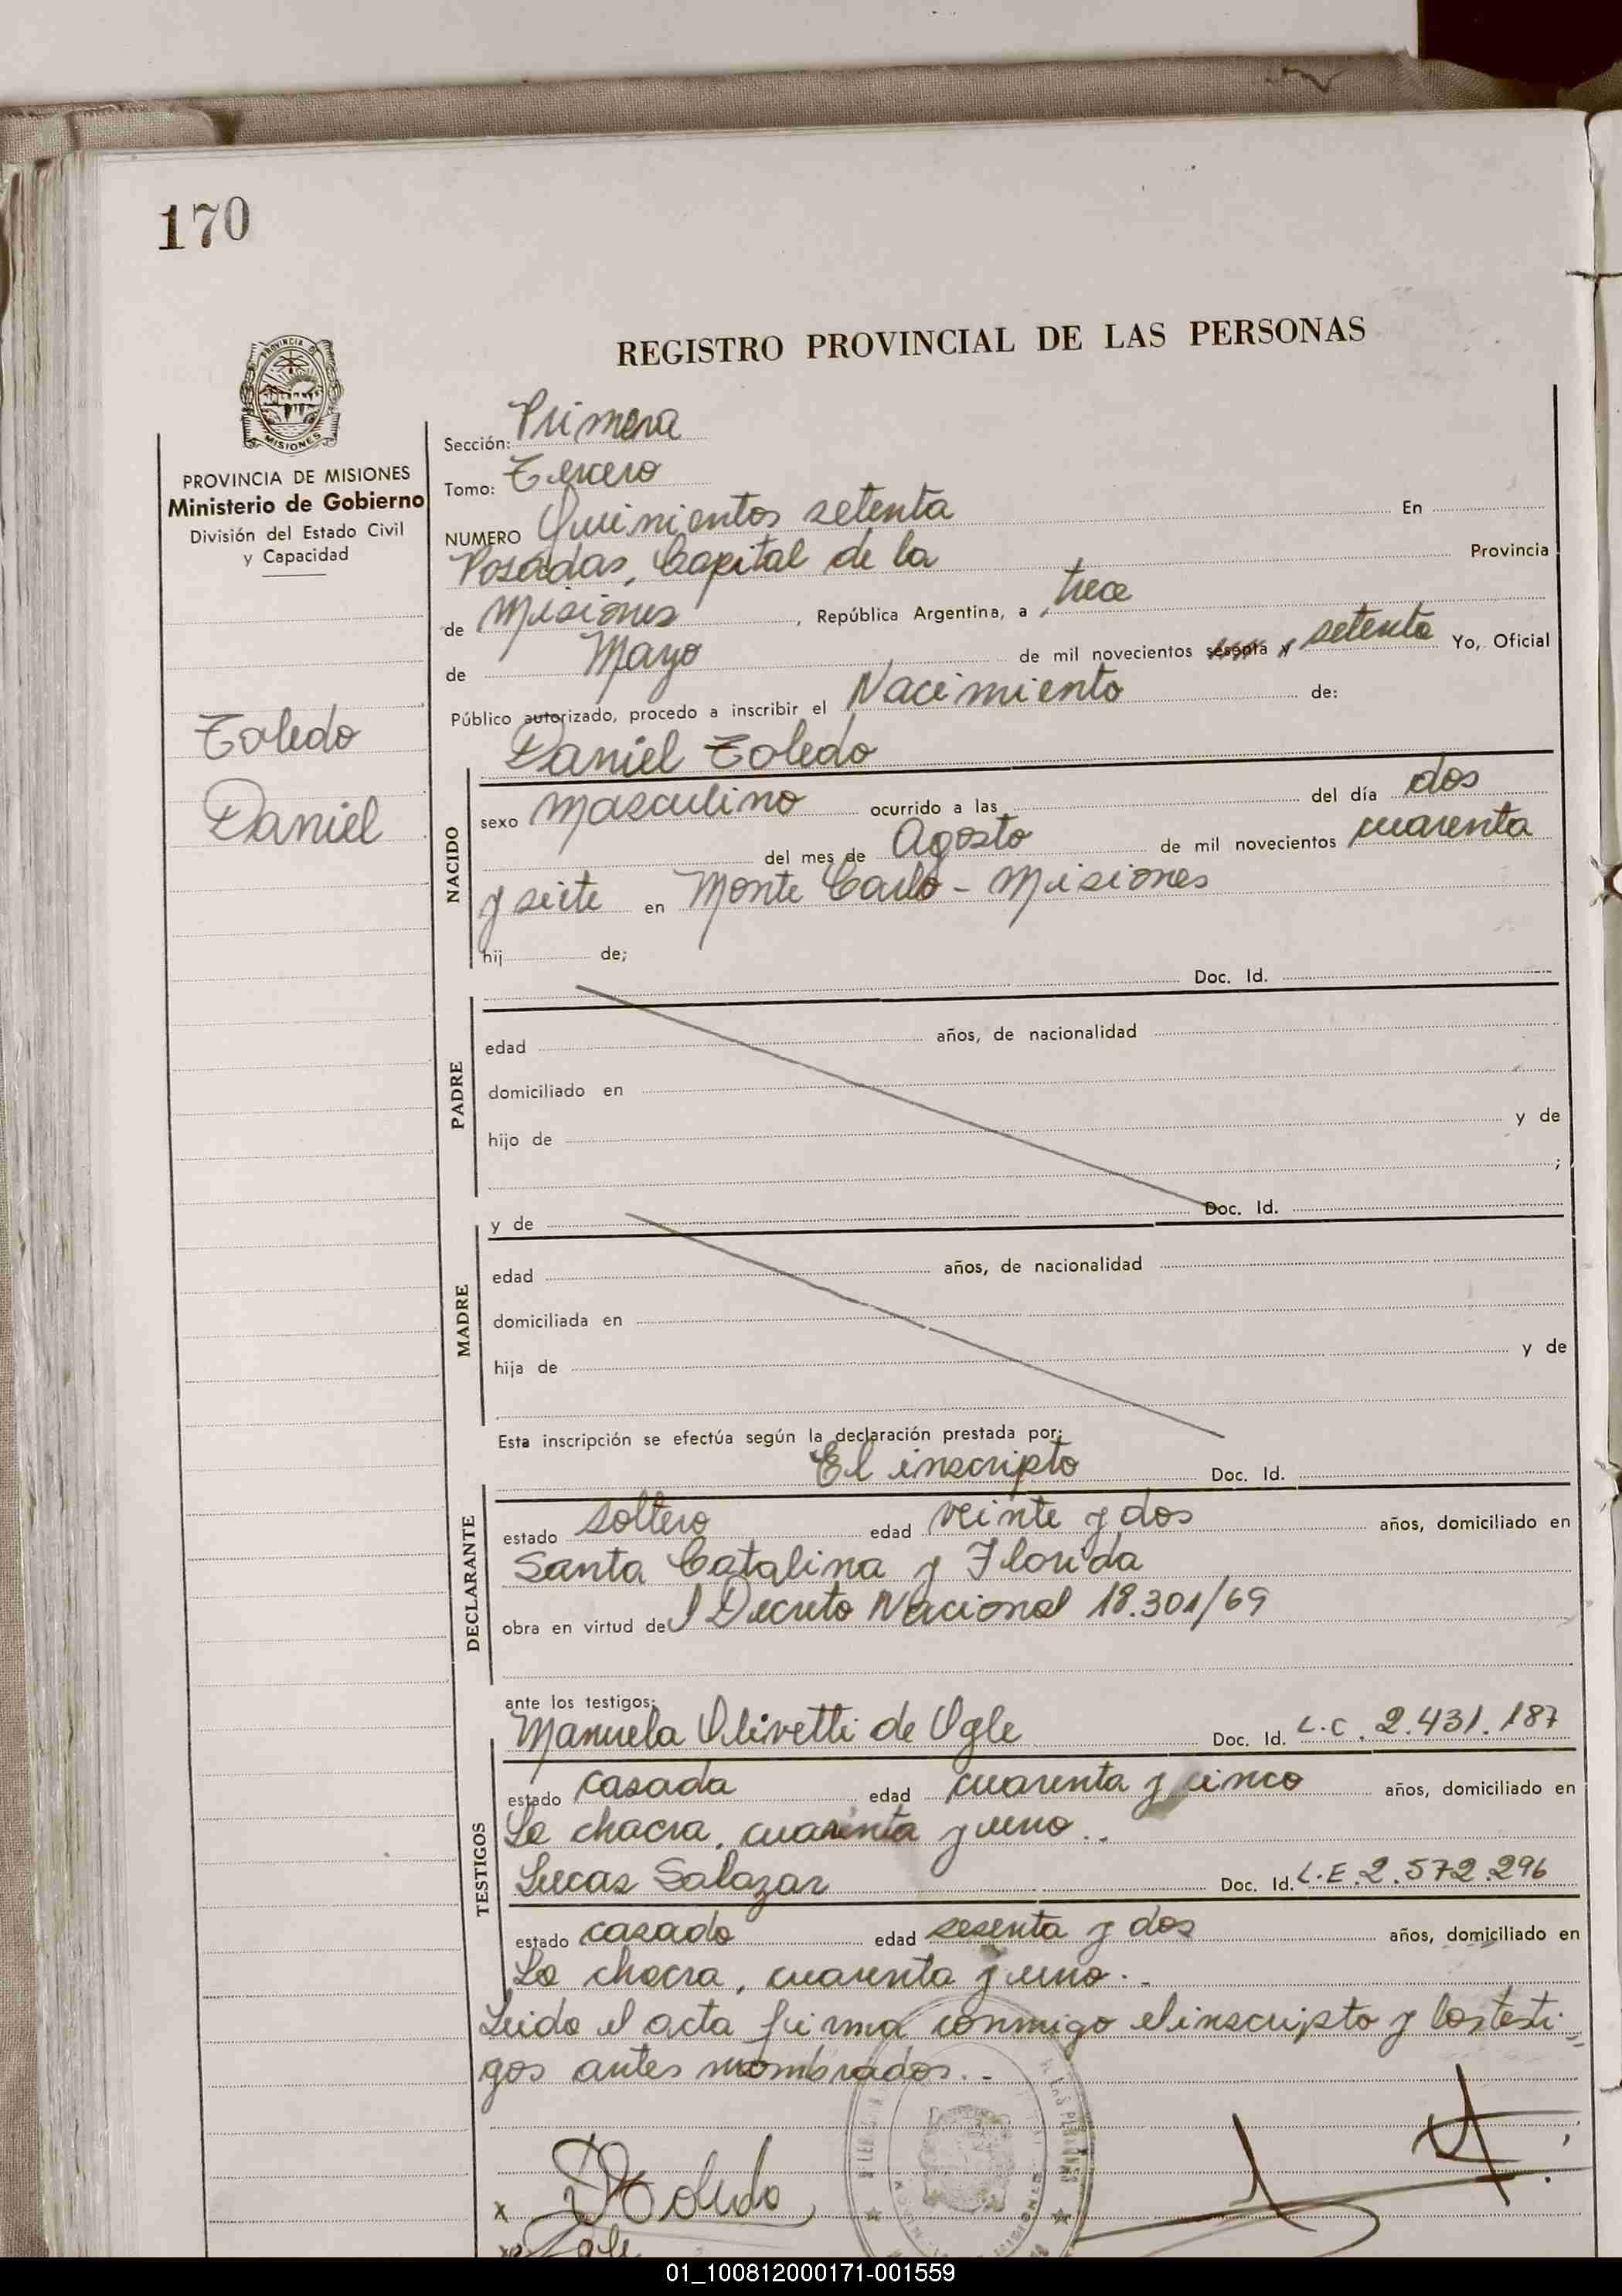 170
REGISTRO PROVINCIAL DE LAS PERSONAS
PROVINCIA DE
MISIONES
PROVINCIA DE MISIONES
Ministerio de Gobierno
División del Estado Civil
y Capacidad
Toledo
Daniel
Sección: Primera
Tomo: Tercero
NUMERO Quinientos setenta En
Posadas, Capital de la Provincia
de Misiones, República Argentina, a trece
de Mayo de mil novecientos sesenta y setenta Yo, Oficial
Público autorizado, procedo a inscribir el Nacimiento de:
Daniel Toledo
NACIDO
sexo masculino ocurrido a las del día dos
del mes de Agosto de mil novecientos cuarenta
y siete en Monte Carlo - Misiones
hij de;
Doc. Id.
PADRE
edad años, de nacionalidad
domiciliado en
hijo de y de
;
y de Doc. Id.
MADRE
edad años, de nacionalidad
domiciliada en
hija de y de
Esta inscripción se efectúa según la declaración prestada por:
El inscripto Doc. Id.
DECLARANTE
estado soltero edad veinte y dos años, domiciliado en
Santa Catalina y Florida
obra en virtud del Decreto Nacional 18.301/69
ante los testigos:
Manuela Olivetti de Ogle Doc. Id. L.C. 2.431.187
TESTIGOS
estado casada edad cuarenta y cinco años, domiciliado en
La chacra, cuarenta y uno..
Lucas Salazar Doc. Id. L.E. 2.572.296
estado casado edad sesenta y dos años, domiciliado en
La chacra, cuarenta y uno..
Leida el acta firma conmigo el inscripto y los testi-
gos antes nombrados..-
x DToledo
01_100812000171-001559